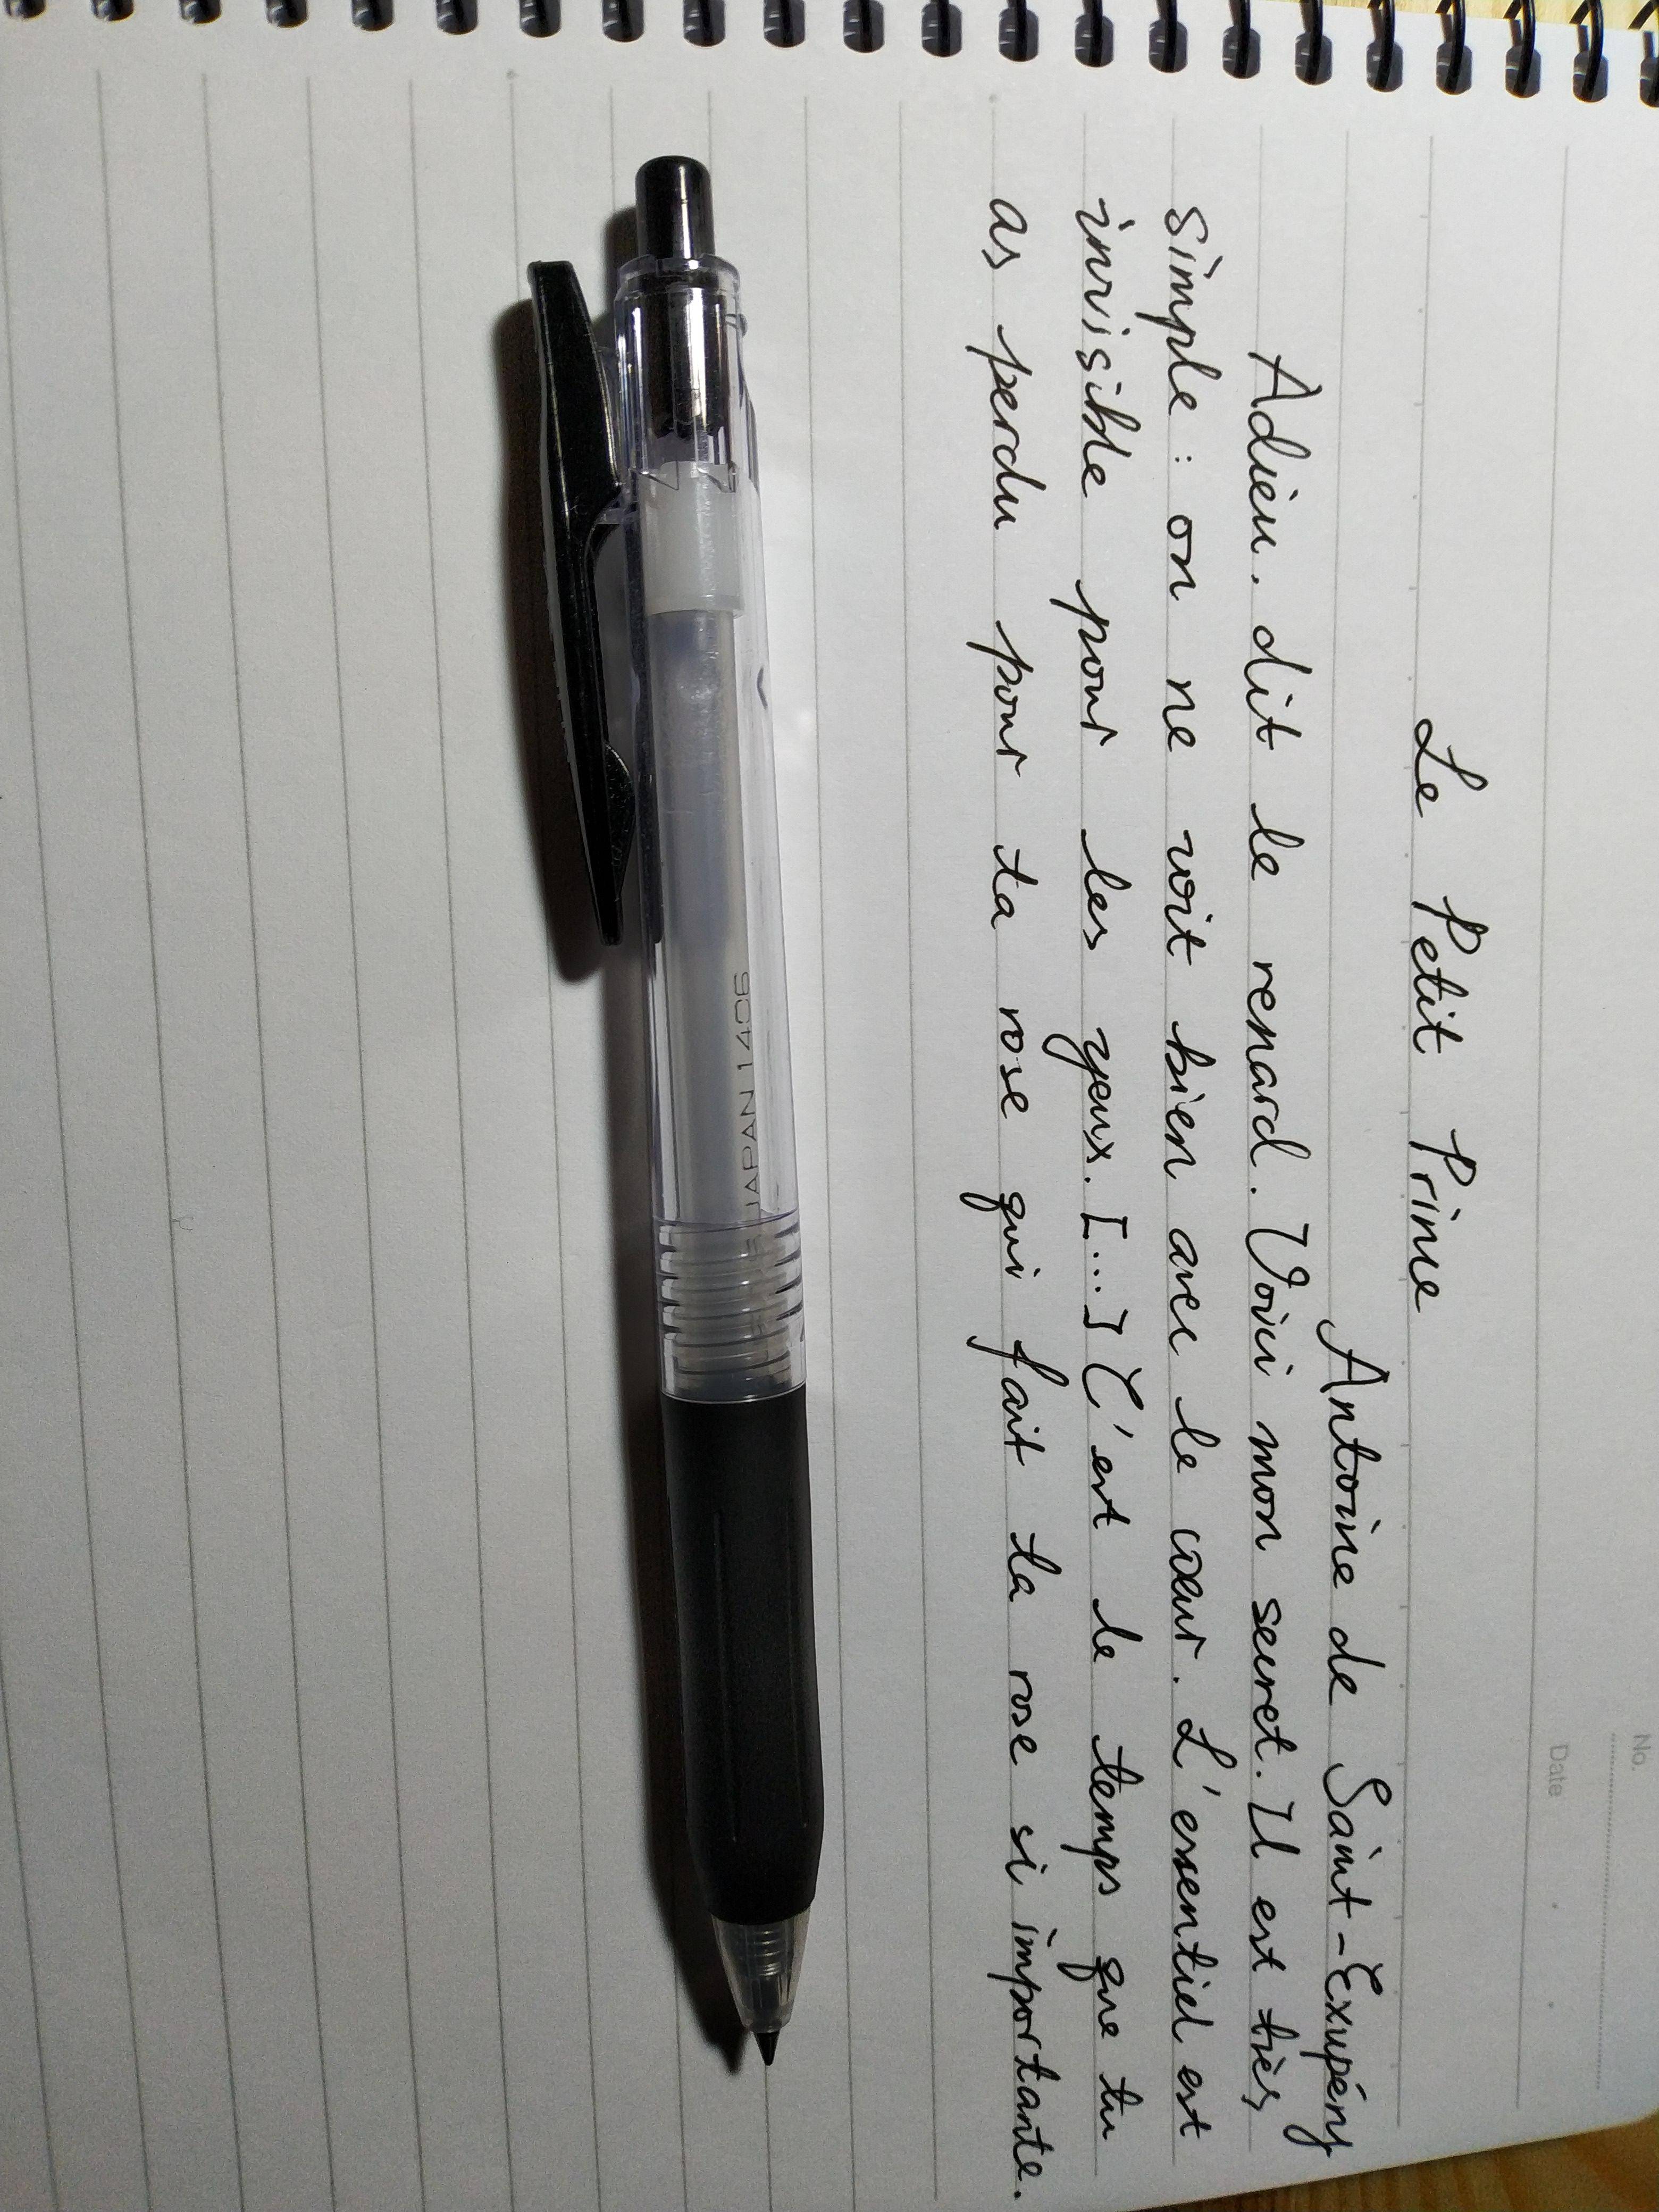 No.
Date
Le Petit Prince
Antoine de Saint-Exupéry
Adieu. dit le renard. Voici mon secret. Il est très
simple : on ne voit bien avec le cœur. L'essentiel est
invisible pour les yeux. [...] C'est le temps que tu
as perdu pour ta rose qui fait ta rose si importante.
JAPAN 14C6